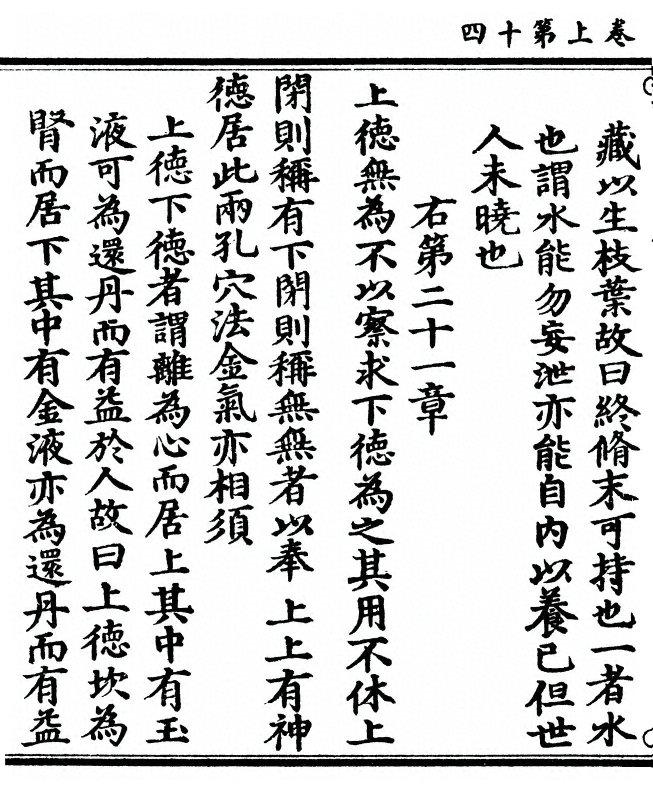 卷上第十四
藏以生枝葉故曰終脩末可持也一者水
也謂水能勿妄泄亦能自内以養已但世
人未曉也
右第二十一章
上德無為不以察求下德為之其用不休上
閉則稱有下閉則稱無無者以奉上上有神
德居此兩孔穴法金氣亦相須
上德下德者謂離為心而居上其中有玉
液可為還丹而有益於人故曰上德坎為
腎而居下其中有金液亦為還丹而有益